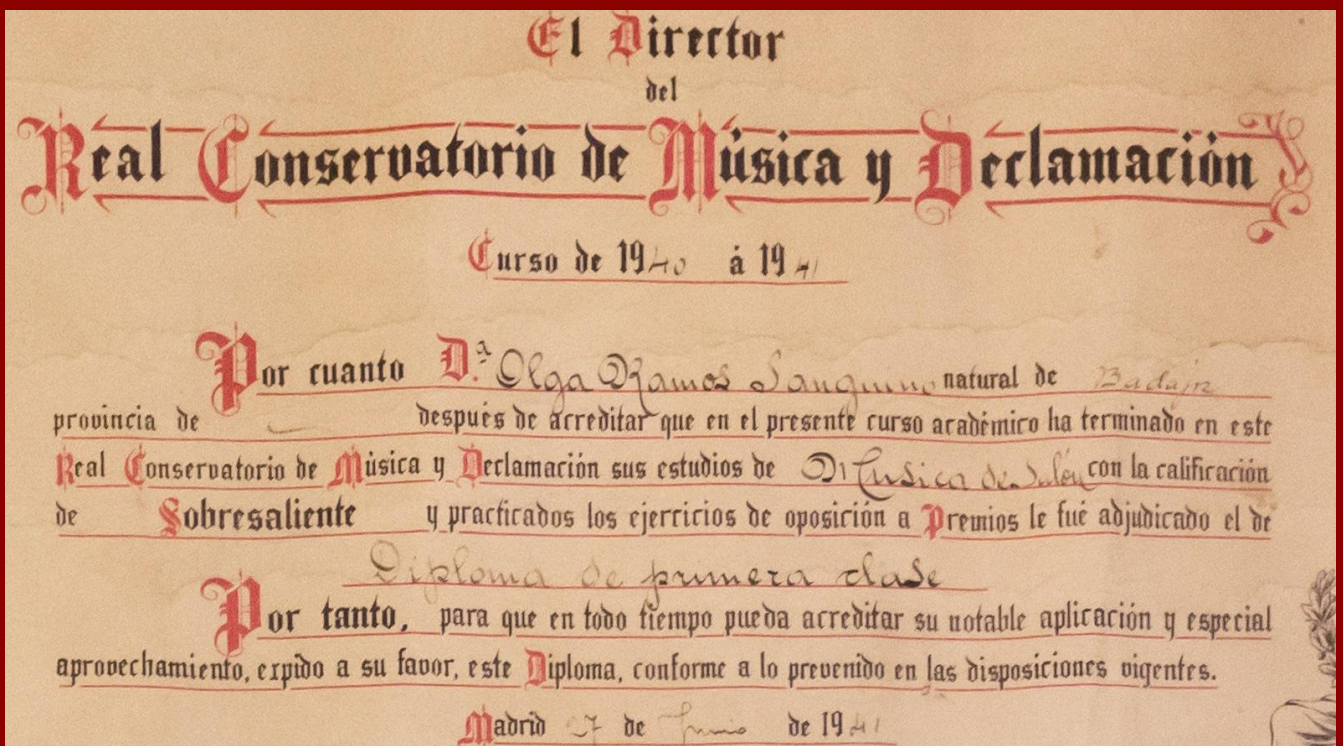 El Director
del
Real Conservatorio de Música y Declamación
Curso de 1940 á 1941
Por cuanto D.ª Olga Ramos Sanguino natural de Badajoz
provincia de después de acreditar que en el presente curso académico ha terminado en este
Real Conservatorio de Música y Declamación sus estudios de Música de Salón con la calificación
de Sobresaliente y practicados los ejercicios de oposición a Premios le fué adjudicado el de
Diploma de primera clase
Por tanto, para que en todo tiempo pueda acreditar su notable aplicación y especial
aprovechamiento, expido a su favor, este Diploma, conforme a lo prevenido en las disposiciones vigentes.
Madrid 27 de Junio de 1941